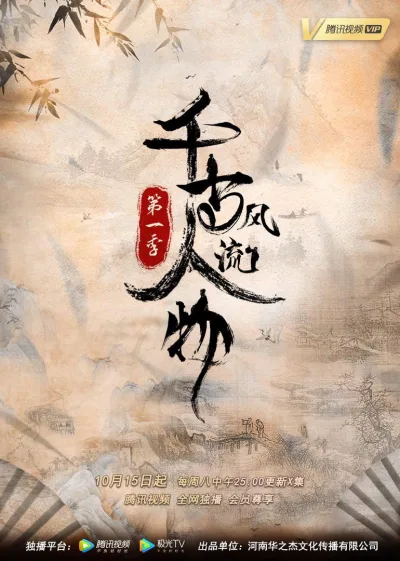 腾讯视频 VIP
千古
风流
人物
第一季
10月15日起 每周八中午25:00更新X集
腾讯视频 全网独播 会员尊享
独播平台: 腾讯视频 极光TV 出品单位: 河南华之杰文化传播有限公司